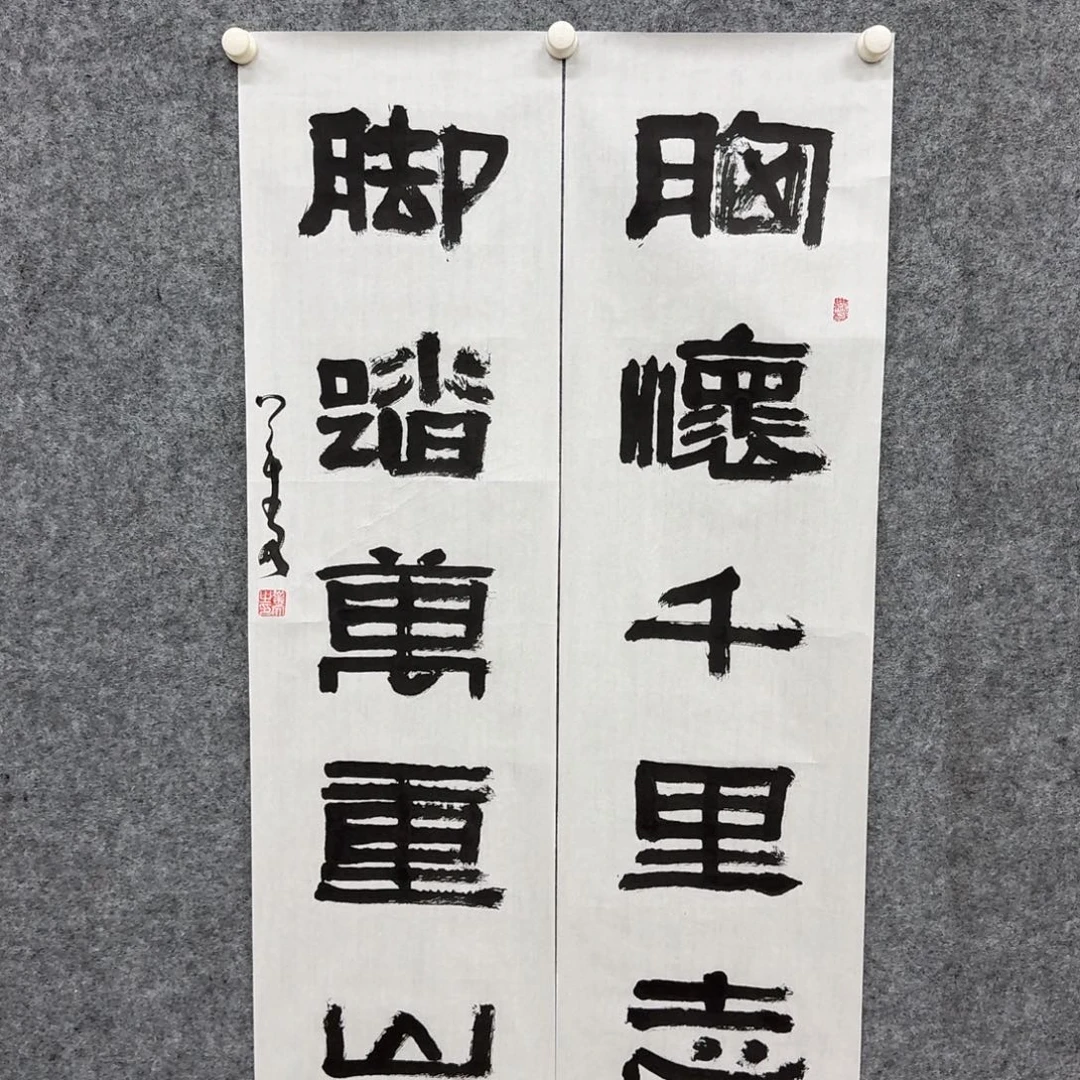 胸懷千里志
脚踏萬重山